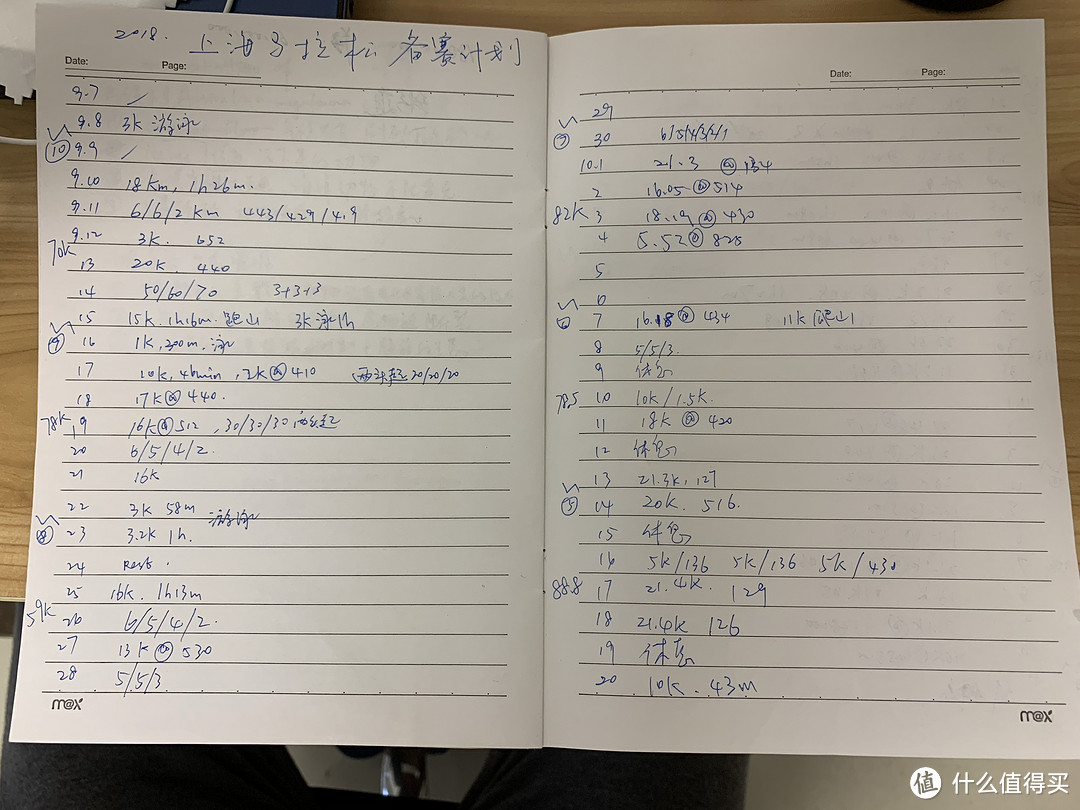 2018. 上海马拉松备赛计划
Date: Page:
9.7 /
9.8 3K 游泳
⑩ 9.9 /
9.10 18km, 1h26m.
9.11 6/6/2 km 443/429/419
9.12 3K. 652
70K
13 20K. 440
14 50/60/70 3+3+3
15 15K. 1h16m. 跑山 3K 泳1h
16 1K, 200m. 泳
17 10K, 46min, 2K@410 (两头起20/20/20
18 17K@440.
78K
19 16K@512, 30/30/30 两头起
20 6/5/4/2.
21 16K
22 3K 58m 游泳
⑧ 23 3.2K 1h.
24 Rest.
25 16K. 1h13m
59K
26 6/5/4/2.
27 13K@530
28 5/5/3
m@x
Date: Page:
29
⑦ 30 6/5/4/3/2/1
10.1 21.3 @
2 16.05@514
82K
3 18.19@430
4 5.52@825
5
6
⑥ 7 16.18@434 11K(爬山)
8 5/5/3.
9 休息
785
10 10K/1.5K.
11 18K @420
12 休息
13 21.3K, 127
⑤ 14 20K. 516.
15 休息
16 5K/136 5K/136 5K/430
88.8
17 21.4K. 129
18 21.4K 126
19 休息
20 10K. 43m
m@x
值 什么值得买